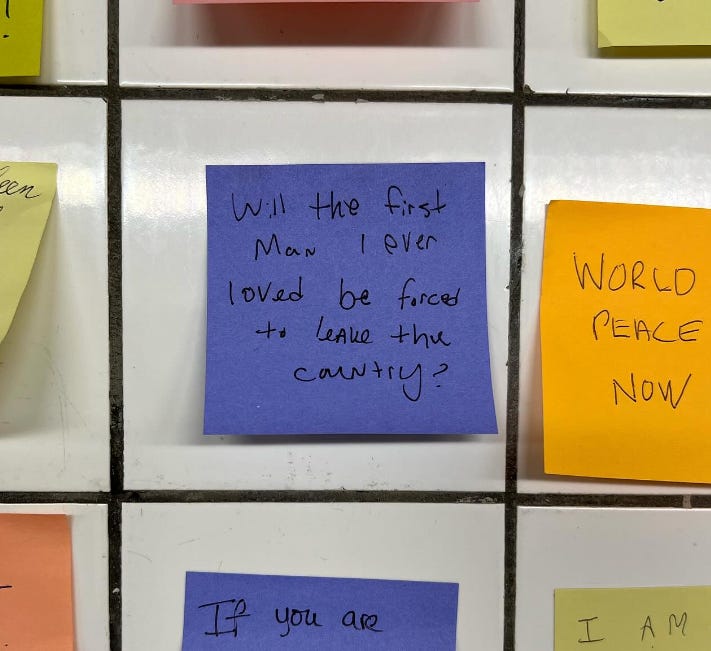 Will the first
Man I ever
loved be forced
to leave the
country?
WORLD
PEACE
NOW
If you are
I AM